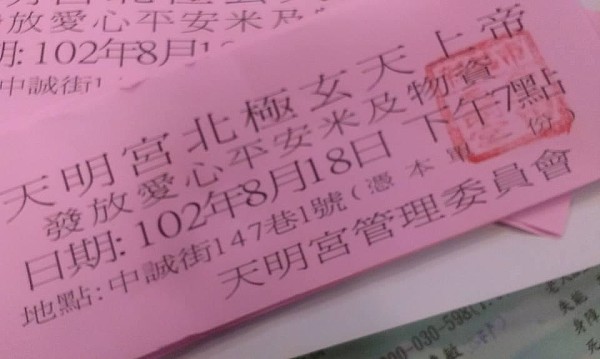 發放愛心平安米及
期:102年8月1
中誠街1
天明宮北極玄天上帝
發放愛心平安米及物資
日期:102年8月18日 下午7點
地點:中誠街147巷1號(憑本單 份)
天明宮管理委員會
000-030-598(